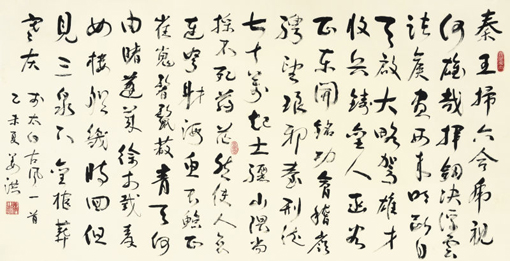 秦王掃六合虎視
何雄哉揮劍決浮雲
諸侯盡西來明斷自
天啟大略駕雄才
收兵鑄金人函谷
正東開銘功會稽嶺
騁望琅邪臺刑徒
七十萬起土驪山隈尚
採不死藥茫然使人哀
連弩射海魚長鯨正
崔嵬鬐鬣蔽青天何
由睹蓬萊徐市載秦
女樓船幾時回但
見三泉下金棺葬
寒灰
太白古風一首
乙未夏姜